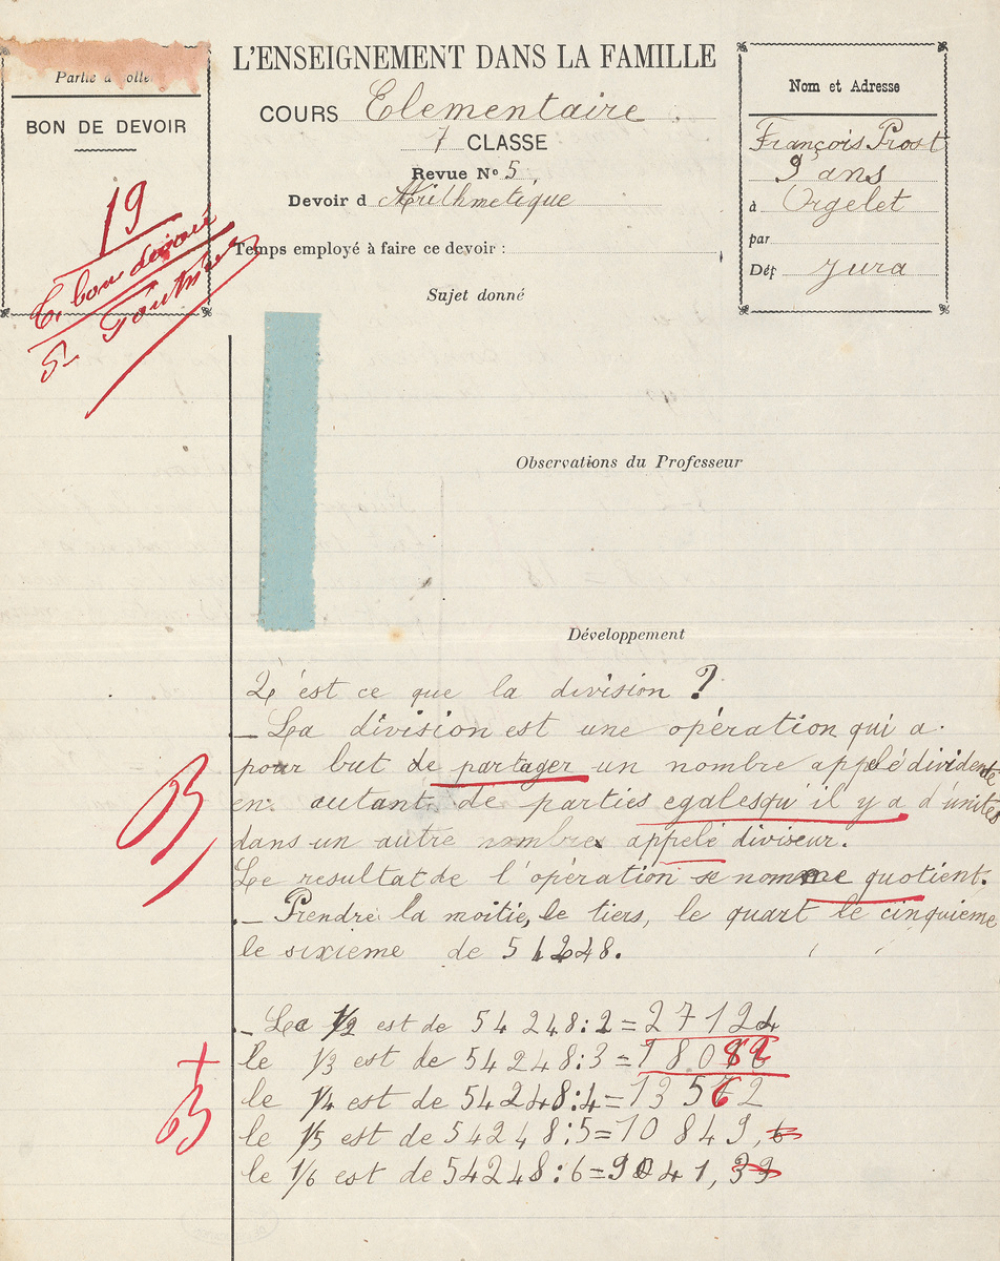 L'ENSEIGNEMENT DANS LA FAMILLE
COURS Elementaire
7 CLASSE
Revue N° 5
Devoir d Arithmetique
Temps employé à faire ce devoir :
Sujet donné
Partie à coller
BON DE DEVOIR
19
T. bon devoir
Nom et Adresse
François Prost
9 ans
à Orgelet
par
Dép Jura
Observations du Professeur
Développement
Q'est ce que la division ?
_ La division est une opération qui a
pour but de partager un nombre appelé dividente
en autant de parties egales qu'il y a d'unités
dans un autre nombre appelé diviseur.
Le resultat de l'opération se nomme quotient.
_ Prendre la moitie, le tiers, le quart le cinquieme
le sixieme de 54248.
_ La 1/2 est de 54248:2=27124
le 1/3 est de 54248:3=18082
le 1/4 est de 54248:4=13562
le 1/5 est de 54248:5=10849,6
le 1/6 est de 54248:6=9041,33
B
+
B